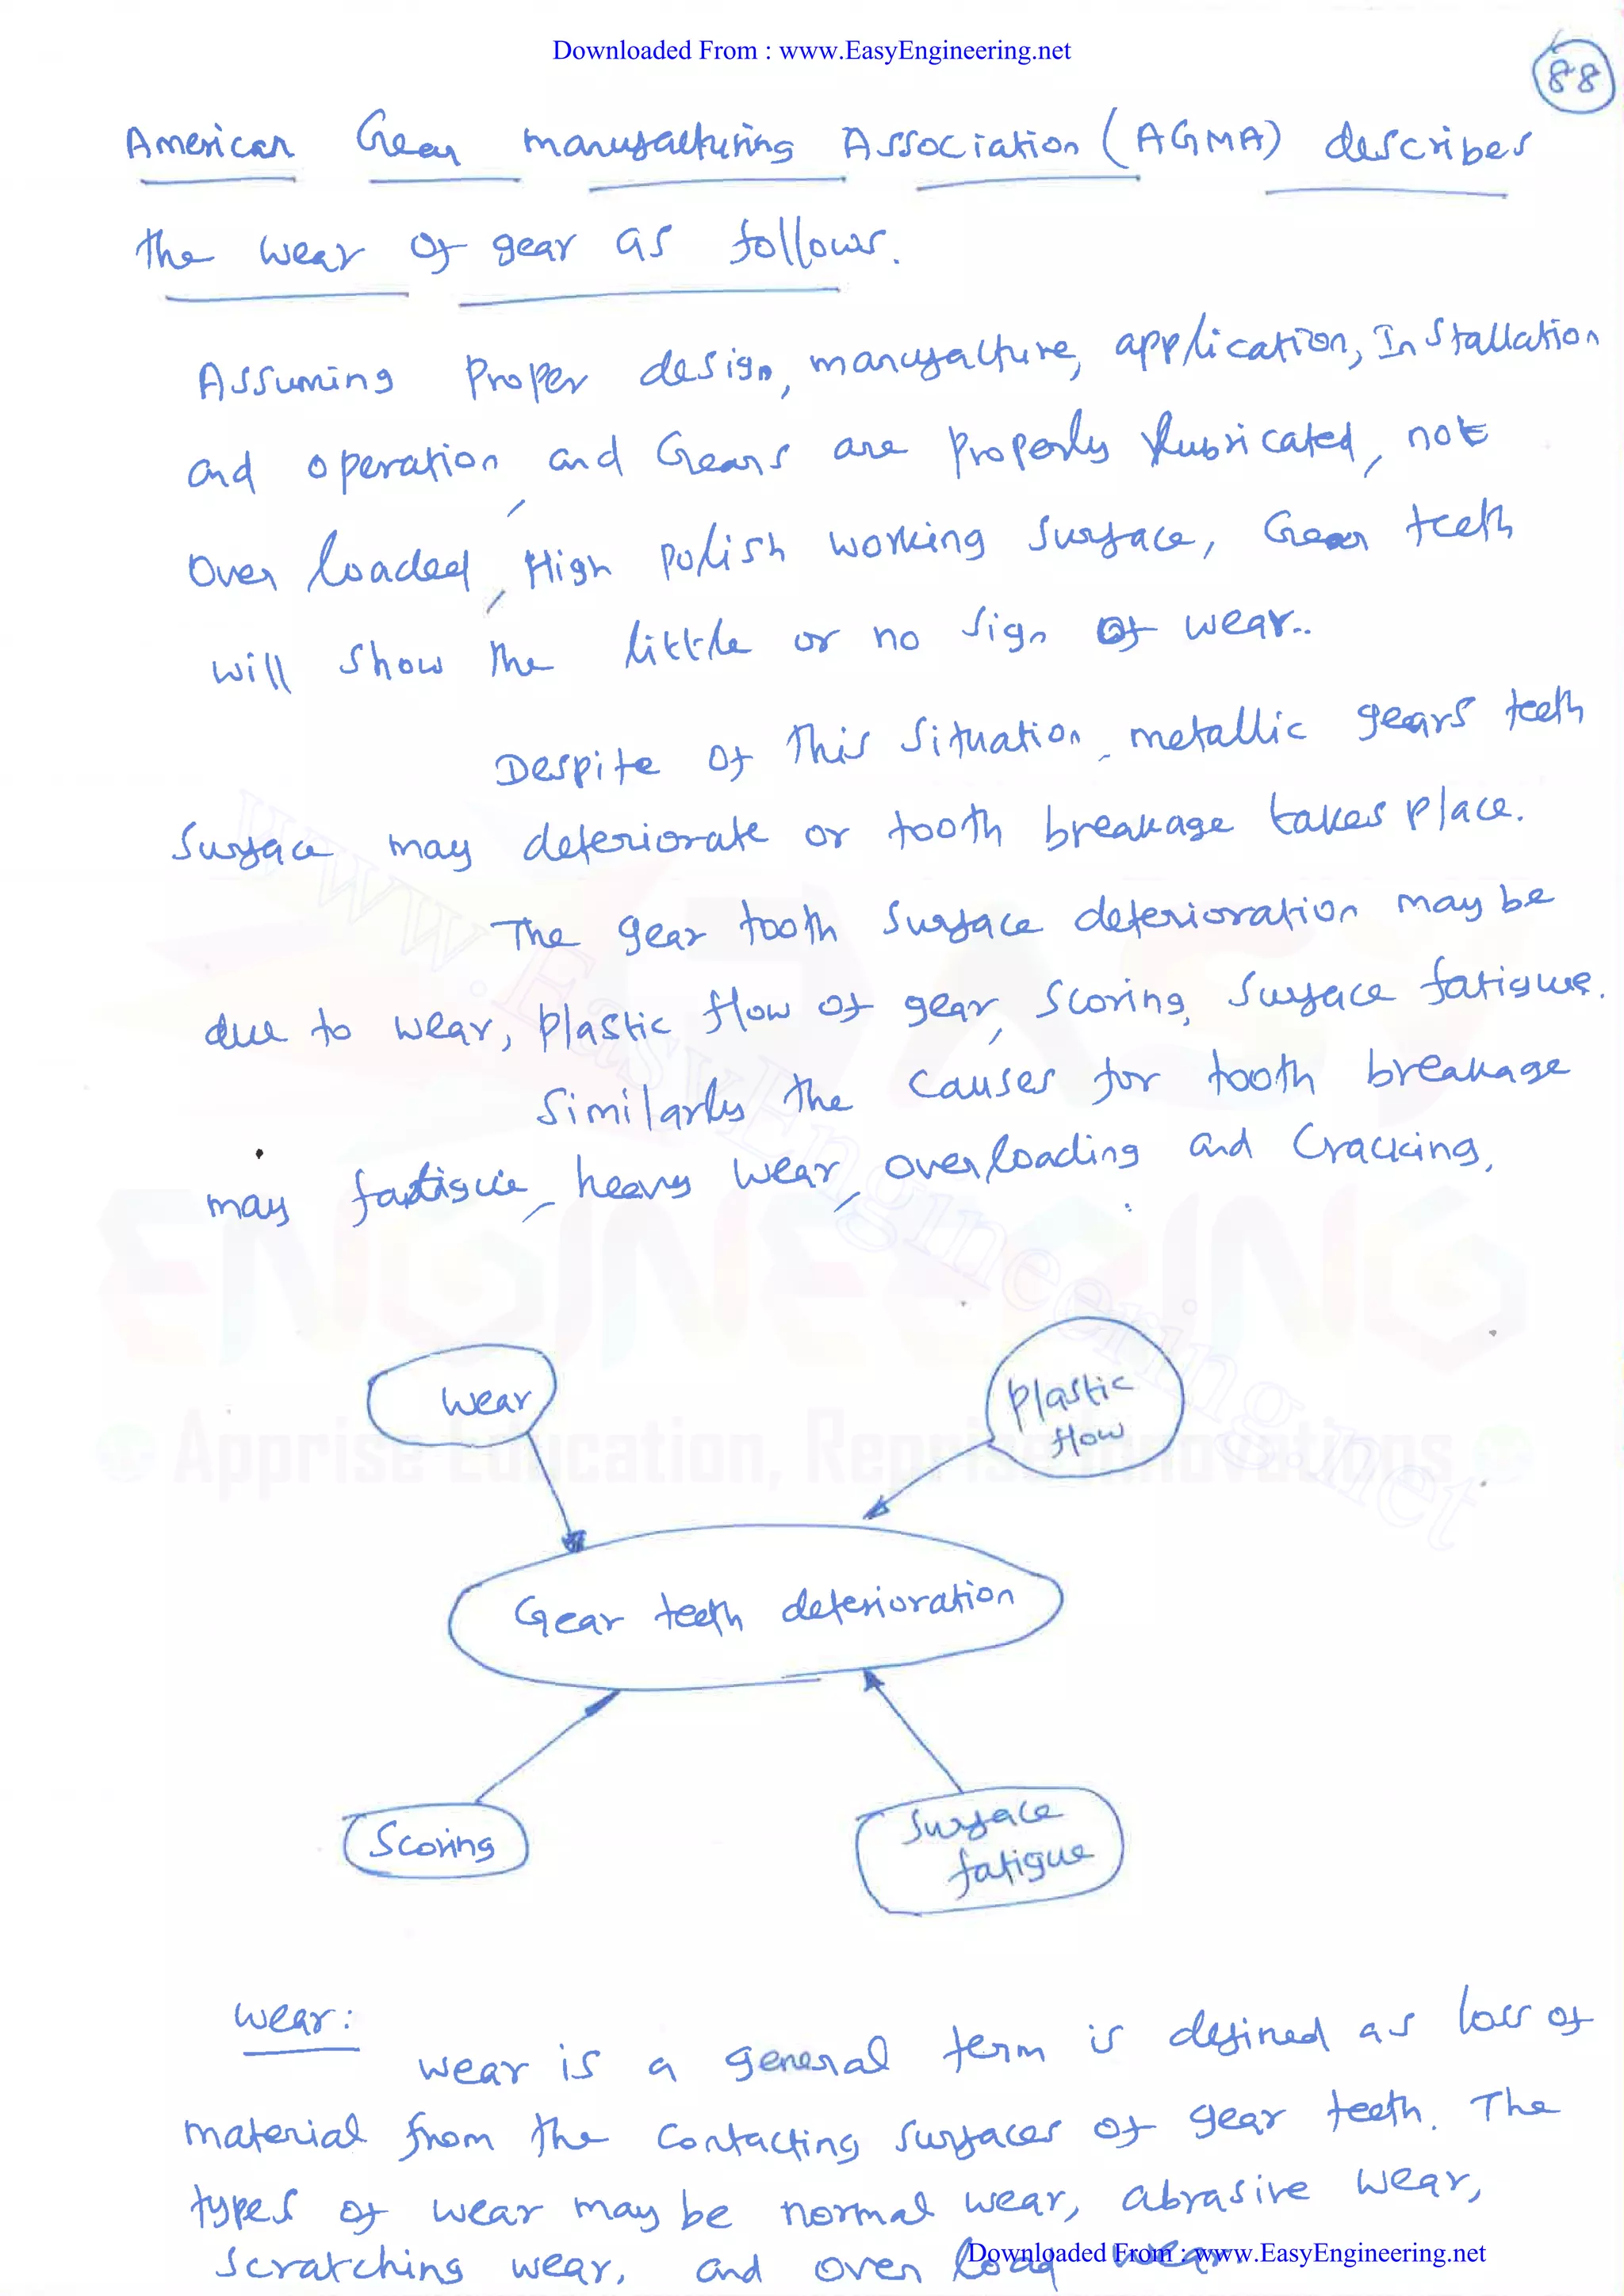 Downloaded From : www.EasyEngineering.net
88
American Gear manufacturing Association (AGMA) describes
the wear of gear as follows.
Assuming Proper design, manufacture, application, Installation
and operation, and Gears are properly lubricated, not
over loaded, High polish working surface, Gear teeth
will show the little or no sign of wear..
Despite of this situation, metallic gears teeth
surface may deteriorate or tooth breakage takes place.
The gear tooth surface deterioration may be
due to wear, plastic flow of gear, scoring, surface fatigue.
Similarly the causes for tooth breakage
may fatigue, heavy wear, overloading and cracking.
www.EasyEngineering.net
ENGINEERING
Apprise Education, Reprise Innovations
wear
plastic
flow
Gear teeth deterioration
Scoring
Surface
fatigue
wear:
wear is a general term is defined as loss of
material from the contacting surfaces of gear teeth. The
types of wear may be normal wear, abrasive wear,
scratching wear, and over load wear.
Downloaded From : www.EasyEngineering.net